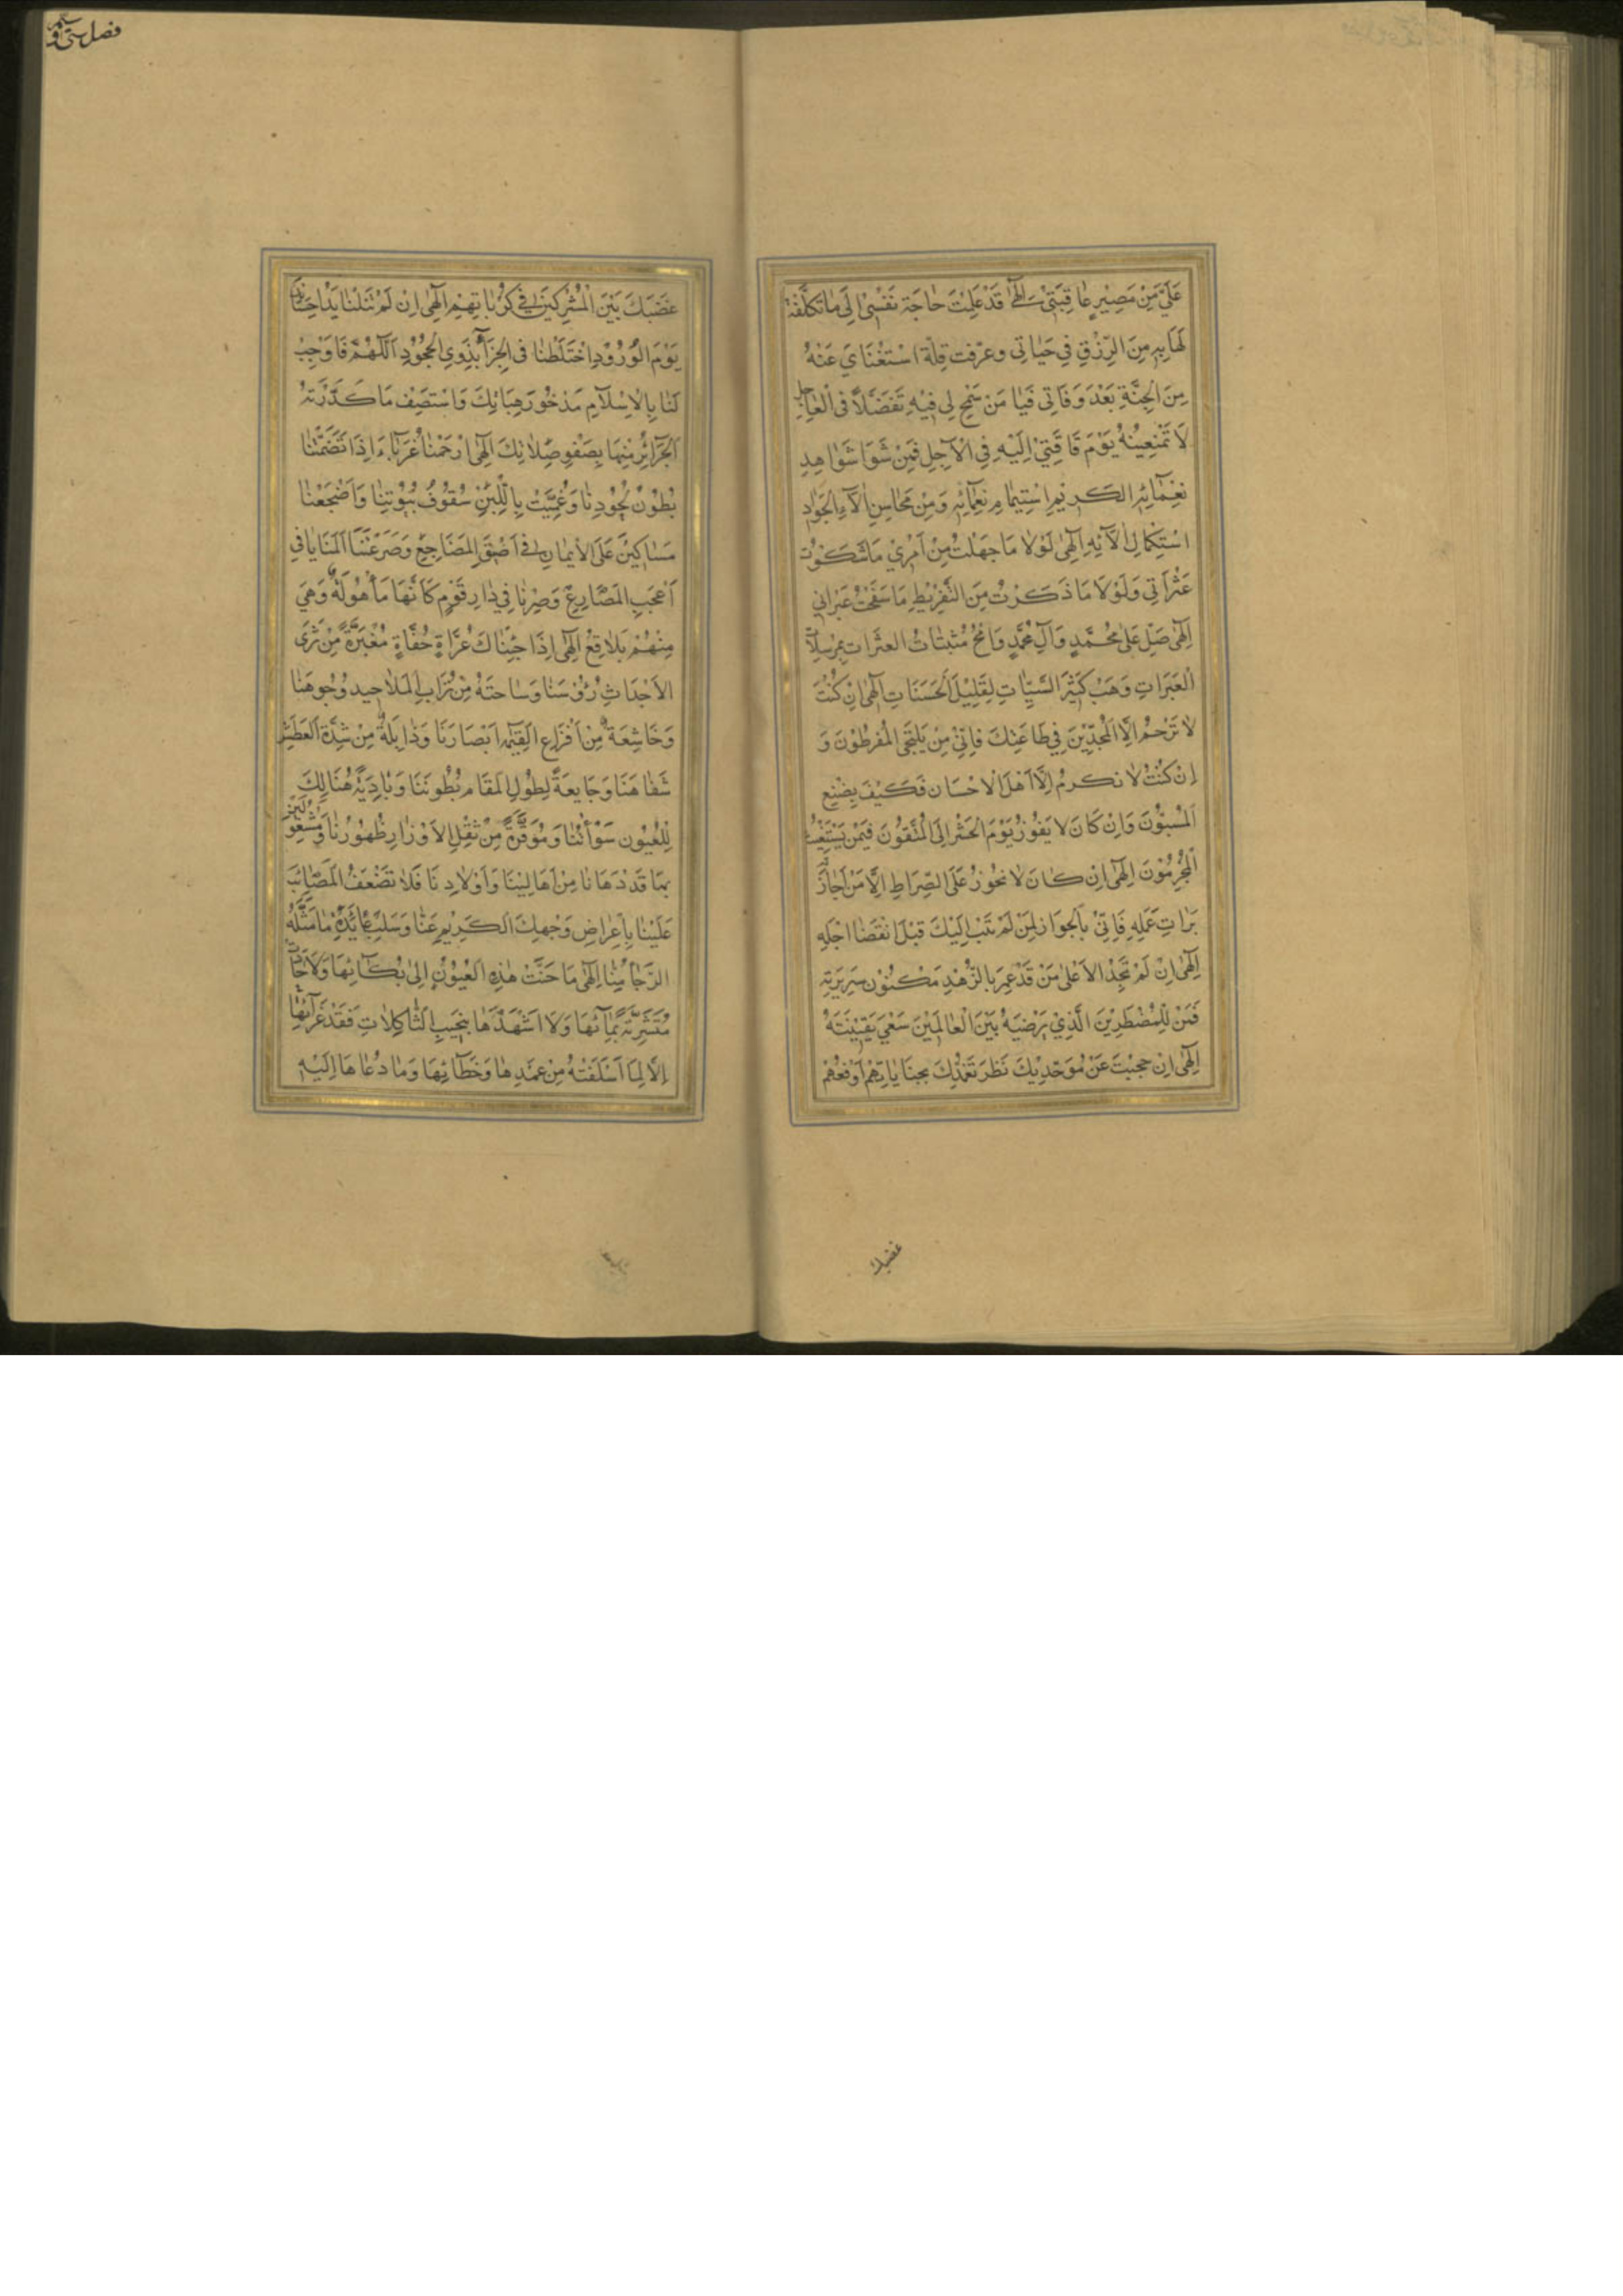 عَلَيَّ مِنْ مَصِيرِ عَاقِبَتِي اِلٰهِي قَدْ عَلِمْتَ حَاجَةَ نَفْسِي اِلَى مَا تَكَلَّفْتَ
لَهَا بِهِ مِنَ الرِّزْقِ فِي حَيَاتِي وَعَرَفْتَ قِلَّةَ اسْتِغْنَايَ عَنْهُ
مِنَ الْجَنَّةِ بَعْدَ وَفَاتِي فَيَا مَنْ سَمِحَ لِي فِيهِ تَفَضُّلاً فِي الْعَاجِلِ
لَا تَمْنَعَنِيهُ يَوْمَ فَاقَتِي اِلَيْهِ فِي الْآجِلِ فَمِنْ شَوَا شَوَاهِدِ
نِعَمَائِهِ الْكَرِيمِ اسْتِيمَامِ نِعَمَائِهِ وَمِنْ مَحَاسِنِ اٰلَاءِ الْجَوَادِ
اسْتِكْمَالِ اٰلَائِهِ اِلٰهِي لَوْلَا مَا جَهِلْتُ مِنْ اَمْرِي مَا شَكَوْتُ
عَثَرَاتِي وَلَوْلَا مَا ذَكَرْتُ مِنَ التَّفْرِيطِ مَا سَفَحْتُ عَبَرَاتِي
اِلٰهِي صَلِّ عَلَى مُحَمَّدٍ وَآلِ مُحَمَّدٍ وَامْحُ مُثْبَتَاتُ الْعَثَرَاتِ بِمُرْسَلَاتِ
الْعَبَرَاتِ وَهَبْ كَثِيرَ السَّيِّئَاتِ لِقَلِيلِ الْحَسَنَاتِ اِلٰهِي اِنْ كُنْتَ
لَا تَرْحَمُ اِلَّا الْمُجِدِّينَ فِي طَاعَتِكَ فَاِنِّي مِنْ يَلْتَجِي الْمُفَرِّطُونَ وَ
اِنْ كُنْتَ لَا تُكْرِمُ اِلَّا اَهْلَ الْاِحْسَانِ فَكَيْفَ يَصْنَعُ
الْمُسِيئُونَ وَاِنْ كَانَ لَا يَفُوزُ يَوْمَ الْحَشْرِ اِلَى الْمُتَّقُونَ فَبِمَنْ يَسْتَغِيثُ
الْمُجْرِمُونَ اِلٰهِي اِنْ كَانَ لَا نَجُوزُ عَلَى الصِّرَاطِ اِلَّا مَنْ اَجَازَتْهُ
بَرَاتِ عَمَلِهِ فَاِنِّي بِالْجَوَازِ لِمَنْ لَمْ تَتُبْ اِلَيْكَ قَبْلَ انْقِضَا اَجَلِهِ
اِلٰهِي اِنْ لَمْ تَجُدْ اِلَّا عَلَى مَنْ قَدْ عَمِرَ بِالزُّهْدِ مَكْنُونَ سَرِيرَتِهِ
فَمَنْ لِلْمُضْطَرِّينَ الَّذِي يَرْضِيَهُ بَيْنَ الْعَالَمِينَ سَعْيَ يَقِينَتِهُ
اِلٰهِي اِنْ حَجَبْتَ عَنْ مُوَحِّدِيكَ نَظَرَ تَغَمُّدِكَ بِجِنَايَاتِهِمْ اَوْقَعَهُمْ
غضبك
فصل
غَضَبَكَ بَيْنَ الْمُشْرِكِينَ فِي كُرُبَاتِهِمْ اِلٰهِي اِنْ لَمْ تَنَلْنَا يَدُ اِحْسَانِكَ
يَوْمَ الْوُرُودِ اخْتَلَطْنَا فِي الْجَزَاءِ بِذَوِي الْجُحُودِ اَللّٰهُمَّ فَاَوْجِبْ
لَنَا بِالْاِسْلَامِ مَذْخُورَ هِبَائِكَ وَاسْتَصِفْ مَا كَدَّرَتْهُ
الْجَرَائِرُ مِنْهَا بِصَفْوِ صِلَاتِكَ اِلٰهِي ارْحَمْنَا غُرَبَاءَ اِذَا تَضَمَّنَنَا
بُطُونُ لُحُودِنَا وَغُمِّيَتْ بِاللَّبِنِ سُقُوفُ بُيُوتِنَا وَاَضْجَعْنَا
مَسَاكِينَ عَلَى الْاَيْمَانِ فِي اَضْيَقِ الْمَضَاجِعِ وَصَرَعَتْنَا الْمَنَايَا فِي
اَعْجَبِ الْمَصَارِعِ وَصِرْنَا فِي دَارِ قَوْمٍ كَاَنَّهَا مَأْهُولَةٌ وَهِيَ
مِنْهُمْ بَلَاقِعُ اِلٰهِي اِذَا جِئْنَاكَ عُرَاةً حُفَاةً مُغْبَرَّةً مِنْ ثَرَى
الْاَجْدَاثِ رُؤُسَنَا وَسَاحَتُهُ مِنْ تُرَابِ الْمَلَاحِيدِ وُجُوهَنَا
وَخَاشِعَةً مِنْ اَفْزَاعِ الْقِيٰمَةِ اَبْصَارَنَا وَذَابِلَةً مِنْ شِدَّةِ الْعَطَشِ
شَفَاهَنَا وَجَايِعَةً لِطُولِ الْمَقَامِ بُطُونَنَا وَبَادِيَةً هُنَالِكَ
لِلْعُيُونِ سَوْآتُنَا وَمُوَقَّرَةً مِنْ ثِقْلِ الْاَوْزَارِ ظُهُورُنَا وَمَشْغُولِينَ
بِمَا قَدْ دَهَانَا مِنْ اَهَالِينَا وَاَوْلَادِنَا فَلَا تُضَعِّفِ الْمَصَائِبَ
عَلَيْنَا بِاِعْرَاضِ وَجْهِكَ الْكَرِيمِ عَنَّا وَسَلْبِ عَائِدَةِ مَا مَثَّلَهُ
الرَّجَاءُ مِنَّا اِلٰهِي مَا حَنَّتْ هٰذِهِ الْعُيُونُ اِلَى بُكَائِهَا وَلَا جَادَتْ
مُتَشَرِّبَةً بِمَائِهَا وَلَا اَشْهَدَهَا بِنَحِيبِ الثَّاكِلَاتِ فَقَدْ عَزَائِهَا
اِلَّا لِمَا اَسْلَفَتْهُ مِنْ عَمَدِهَا وَخَطَائِهَا وَمَا دُعَاهَا اِلَيْهِ